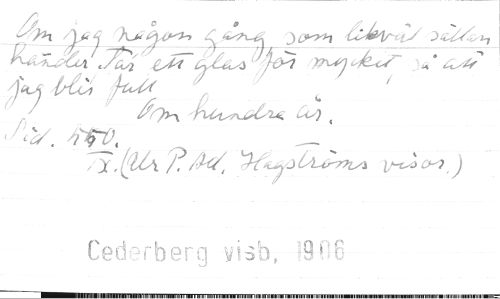 Om jag någon gång som likväl sällan
händer. Tar ett glas för mycket, så att
jag blir full
Om hundra år.
Sid. 550.
IX. (Ur P. Ad. Hagströms visor.)
Cederberg visb, 1906